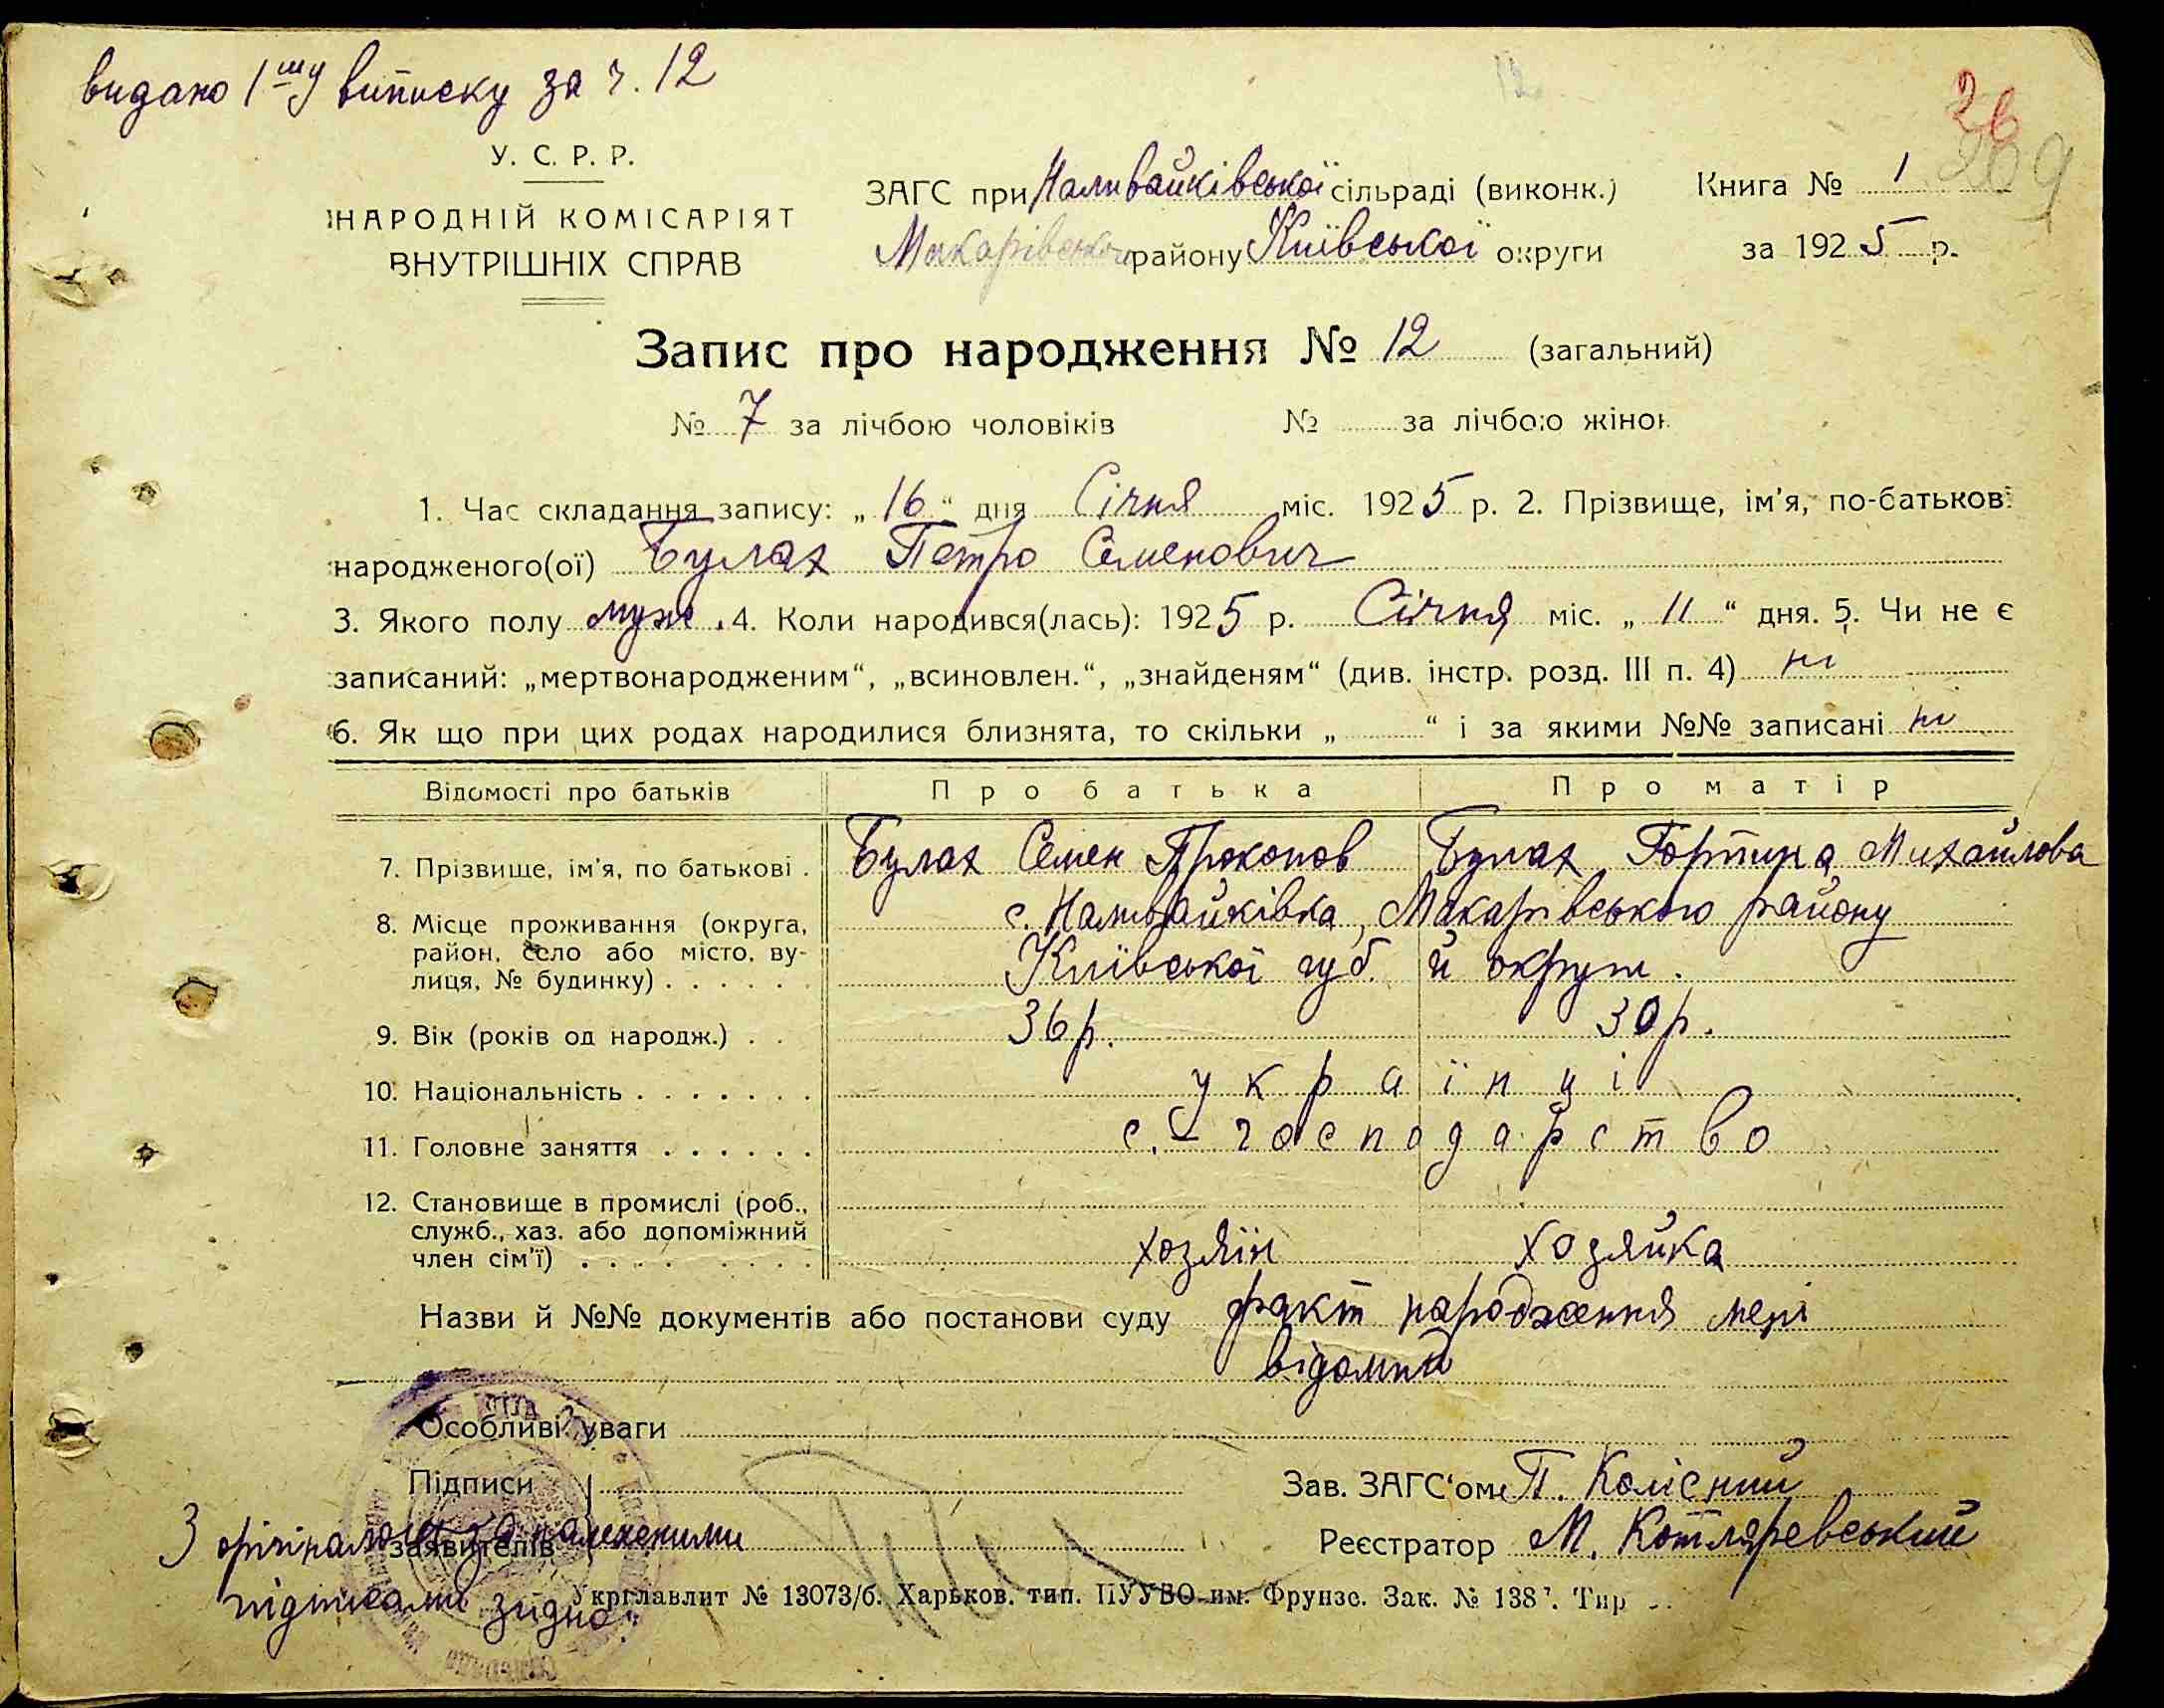 видано 1шу виписку за ч. 12
26
У. С. Р. Р.
НАРОДНІЙ КОМІСАРІЯТ
ВНУТРІШНІХ СПРАВ
ЗАГС при Наливайківської сільраді (виконк.)
Макарівського району Київської округи
Книга № 1
за 1925 р.
Запис про народження № 12 (загальний)
№ 7 за лічбою чоловіків № за лічбою жінок
1. Час складання запису: „16“ дня Січня міс. 1925 р. 2. Прізвище, ім'я, по-батькові
народженого(ої) Булах Петро Семенович
3. Якого полу муж. 4. Коли народився(лась): 1925 р. Січня міс. „11“ дня. 5. Чи не є
записаний: „мертвонародженим“, „всиновлен.“, „знайденям“ (див. інстр. розд. III п. 4) ні
6. Як що при цих родах народилися близнята, то скільки „ “ і за якими №№ записані ні
Відомості про батьків Про батька Про матір
7. Прізвище, ім'я, по батькові . Булах Семен Прокопов Булах Горпина Михайлова
8. Місце проживання (округа, с. Наливайківка, Макарівського району
район, село або місто, ву- Київської губ. й округи.
лиця, № будинку) . . . . . .
9. Вік (років од народж.) . . 36 р. 30 р.
10. Національність . . . . . . . українці
11. Головне заняття . . . . . . с.-господарство
12. Становище в промислі (роб.,
служб., хаз. або допоміжний хозяїн хозяйка
член сім'ї) . . . . . . . . .
Назви й №№ документів або постанови суду факт народження мені
відомий
Особливі уваги
Підписи
заявителів
Зав. ЗАГС'ом П. Колісний
Реєстратор М. Котляревський
З орігіналом за належними
підписами згідно:
Укрглавлит № 13073/б. Харьков. тип. ПУУВО им. Фрунзе. Зак. № 138 . Тир